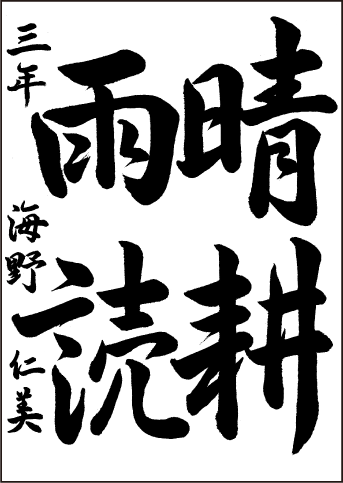 晴耕
雨読
三年 海野 仁美